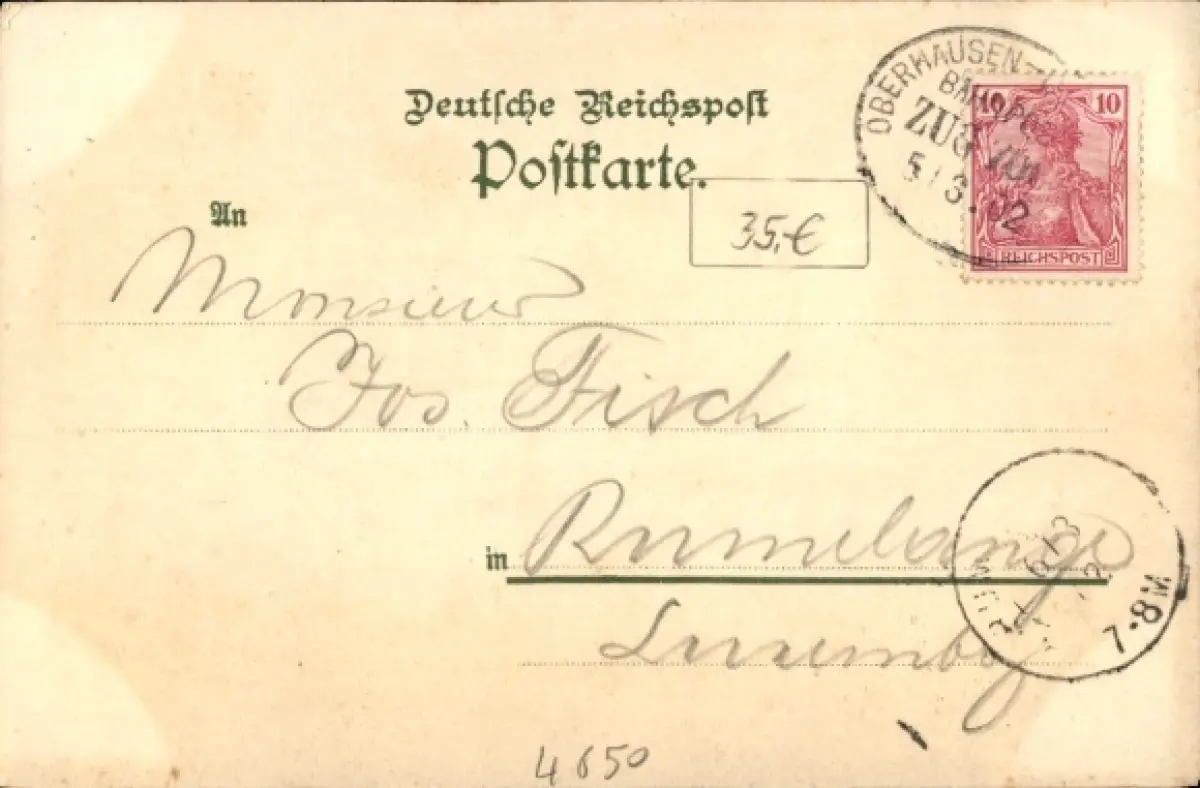 Deutsche Reichspost
Postkarte.
OBERHAUSEN-
ZUG
5/3.02
10 10
REICHSPOST
35,-€
An
Monsieur
Jos. Fisch
in Rumelange
Luxembg
6/3
7-8M
4650